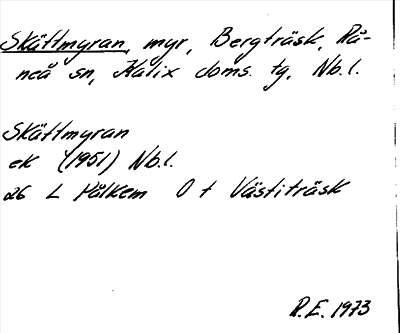 Skättmyran, myr, Bergträsk, Rå-
neå sn, Kalix doms. tg, Nb.l.
Skättmyran
ek (1951) Nb.l.
26 L Pålkem O t Västiträsk
R.E. 1973